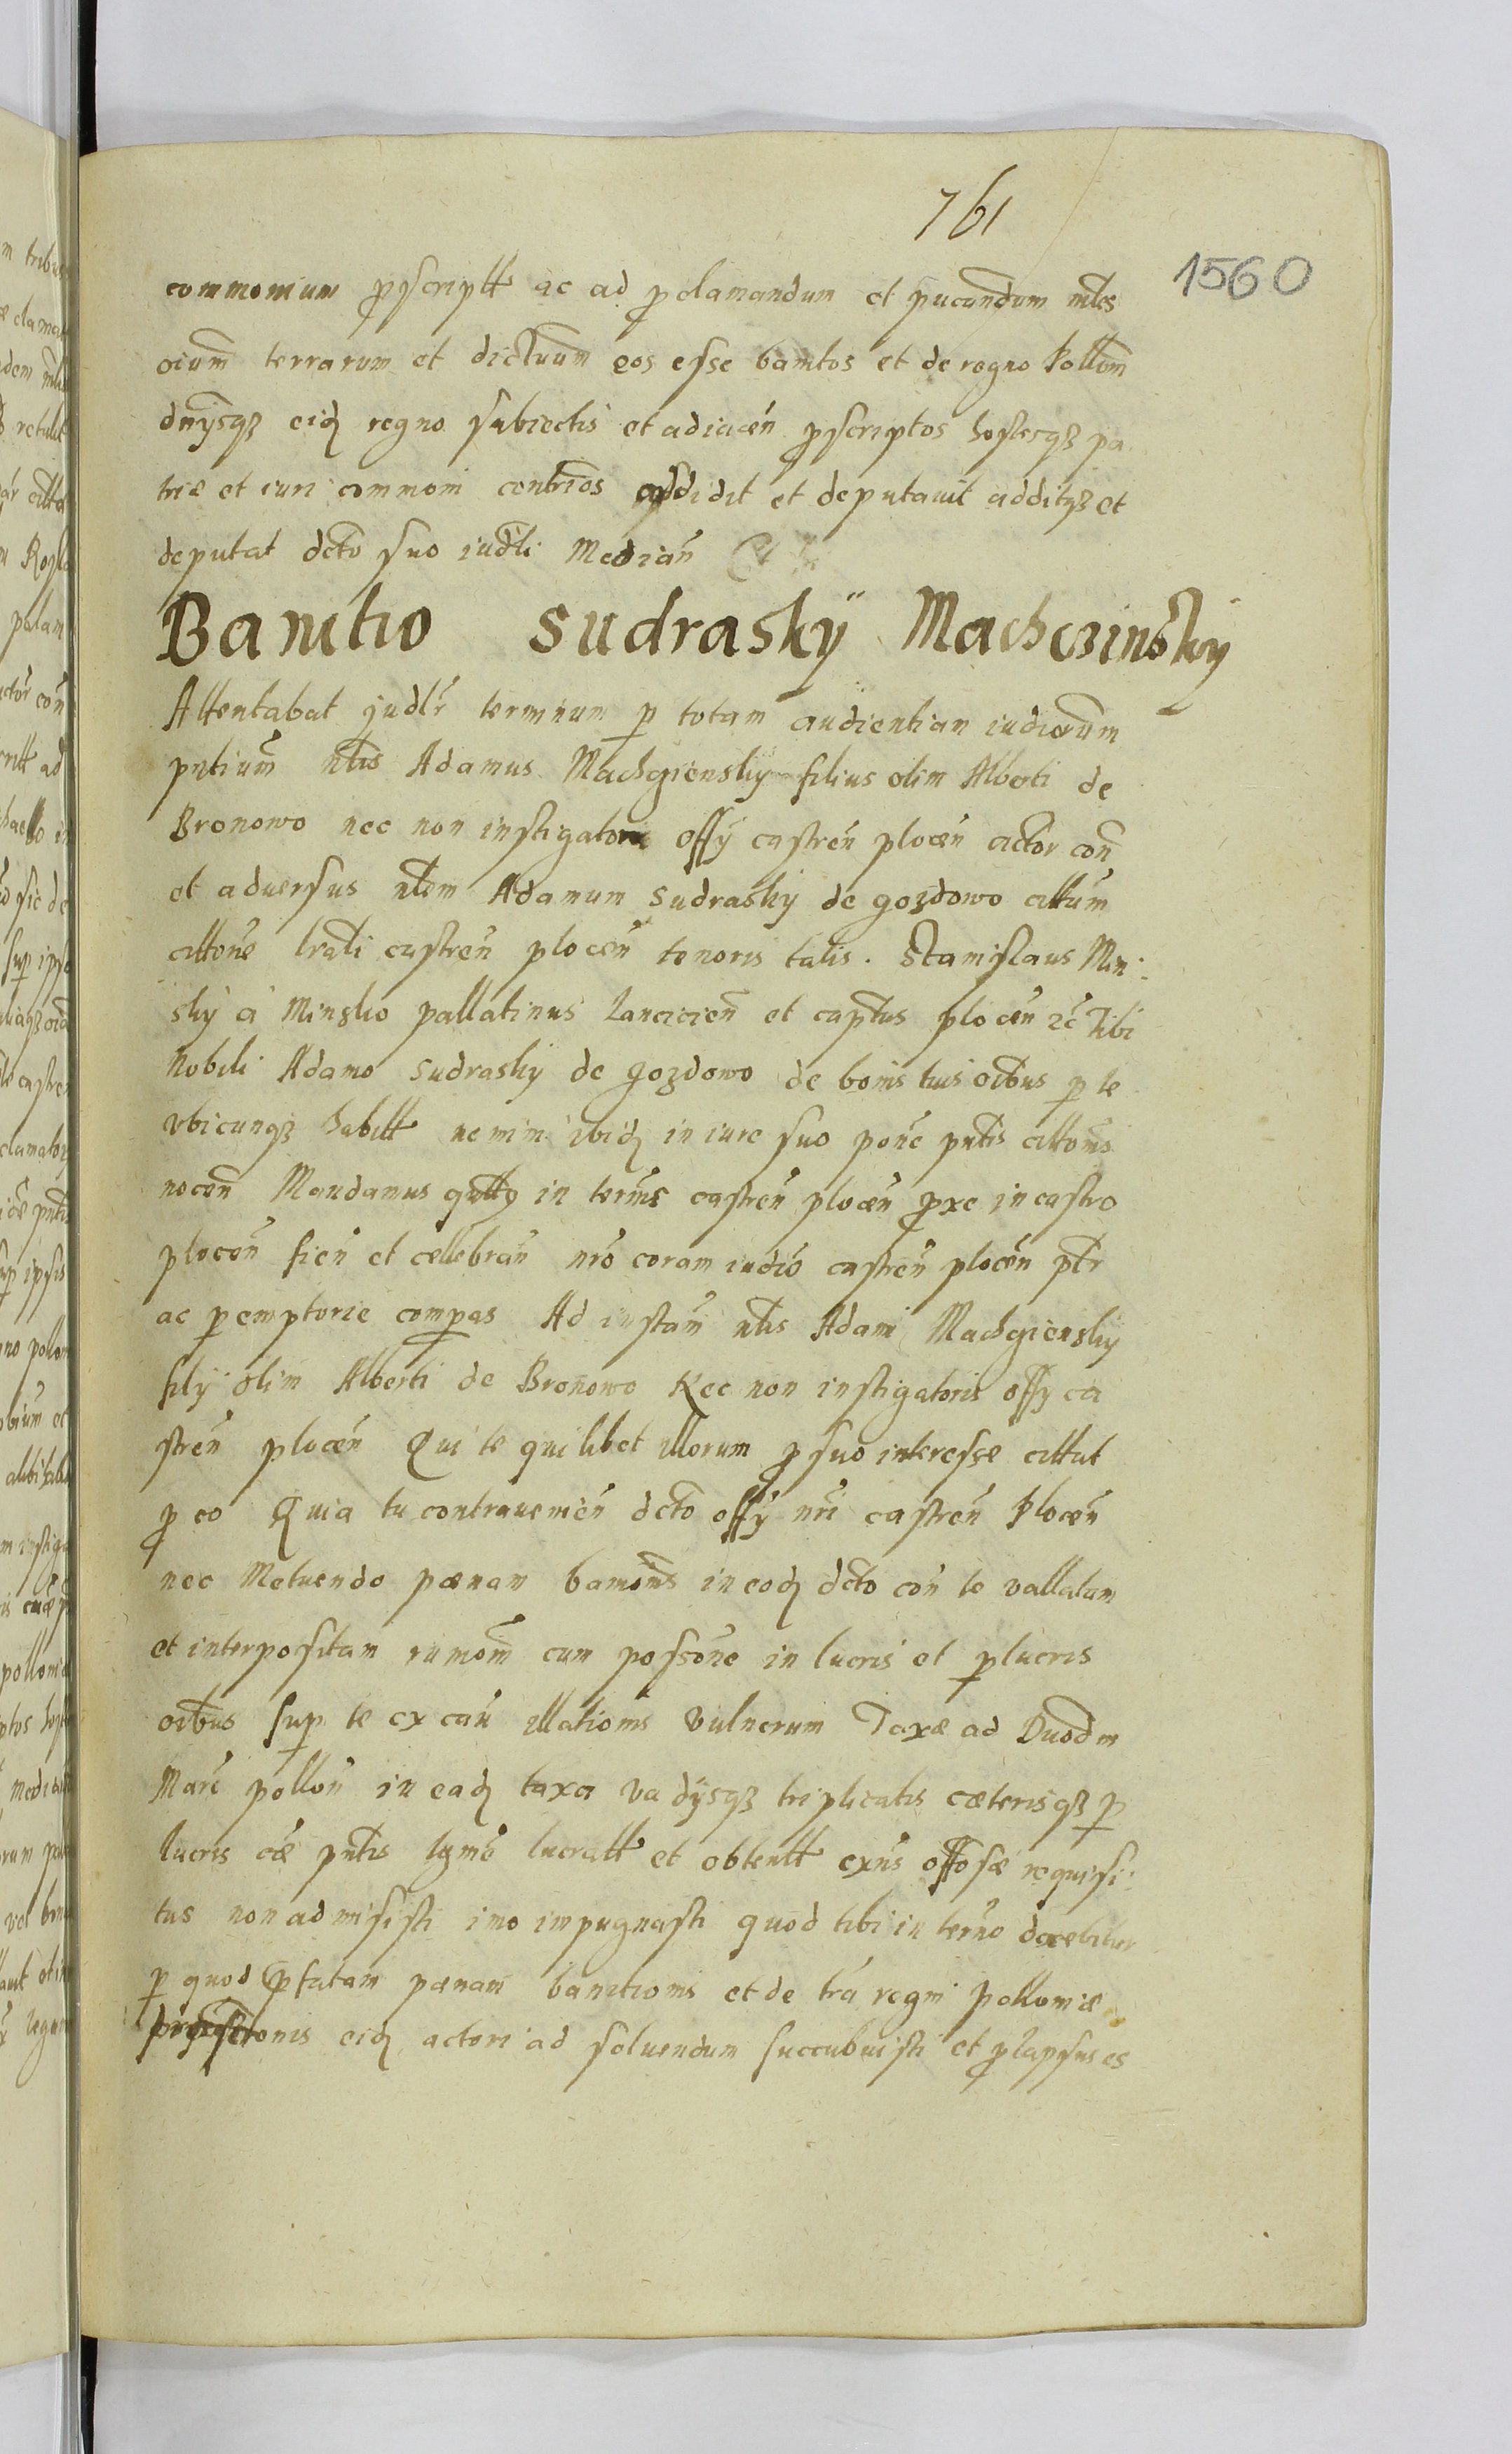 761
1560
commonium proscriptt ac ad proclamandum et pucandum mltes
oium terrarum et dictuum eos esse banitos et de regno Pollon
dnysqz eidz regno subiectis et adiacen proscriptos hostesqz pa
triæ et iuri commoni contrios addidit et deputauit additqz et
deputat dcto suo iudli Median
Banitio Sudrasky Machczinsky
Attentabat judlr terminum p totam audientiam iudiorum
pntium nlis Adamus Machcziensky filius olim Alberti de
Bronowo nec non instigator offy castren plocen actor con
et aduersus nlem Adamum Sudrasky de gozdowo cittum
cittone lrali castren plocen tenoris talis. Stanislaus Min:
sky a Minsko pallatinus Lancicien et captus plocen zc Tibi
Nobili Adamo Sudrasky de gozdowo de bonis tuis oibus p te
vbicunqz habitt nemini ibidz in iure suo pone pntis cittonis
nocen Mandamus qutts in termis castren plocen proxe in castro
plocen fien et cellebran nro coram iudio castren plocen ptr
ac peremptorie compas Ad instan nlis Adami Machcziensky
fily olim Alberti de Bronowo Nec non instigatoris offy ca
stren plocen Qui te quilibet illorum pro suo interesse cittat
pro eo Quia tu contrauenien dcto offy nri castren Plocen
nec Metuendo pænam banionis in eodz dcto con te vallatam
et interpositam rumom cum possone in lucris et perlucris
oibus sup te ex cau illationis vulnerum Taxæ ad Duodm
Marc pollon in eadz taxa vadysqz triplicatis cæterisqz per
lucris cæ pntis lgme lucratt et obtentt exns offose requisi:
tus non admisisti imo impugnasti quod tibi in termo docebitur
p quod præfatam pænam banitionis et de tra regni Polloniæ
proscrionis eidz actori ad soluendum succubuisti et prolapsus es